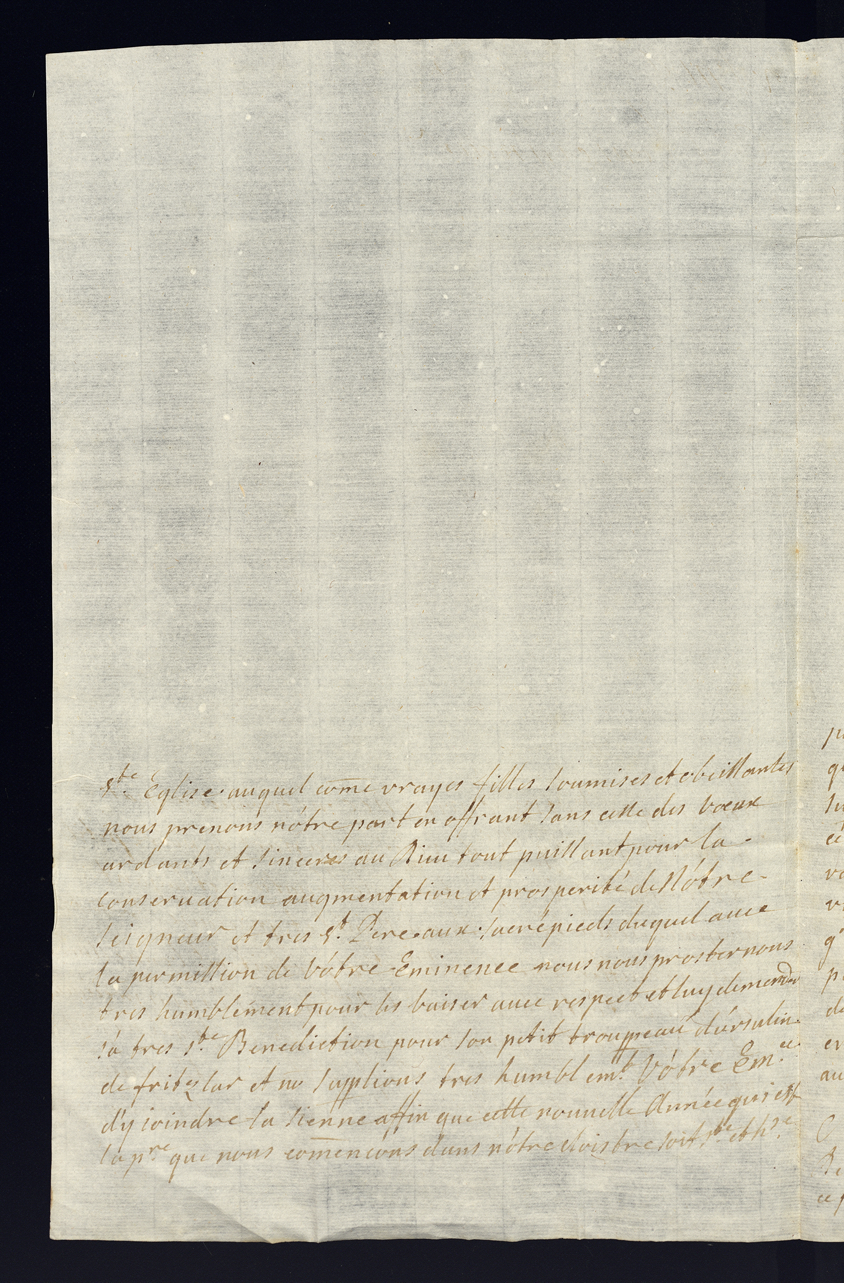 Ste Eglise auquel com̄e vrayes filles soumises et obeissantes
nous prenons nôtre part en offrant sans cesse des vœux
ardants et sinceres au Dieu tout puissant pour la
conservation augmentation et prosperité de Nôtre
seigneur et tres St. Pere aux sacré pieds duquel avec
la permission de Vôtre Eminence nous nous prosternons
tres humblement pour les baiser avec respect et luy demender
sa tres Ste Benediction pour son petit trouppeau d'ursulin
de fritzlar et no supplions tres humblemt. Vôtre Emce
d'y joindre la sienne affin que cette nouvelle Année qui est
la pre que nous com̄encons dans nôtre cloistre soit Ste et
pu
qu
ce
vo
v
q'
p
de
en
au